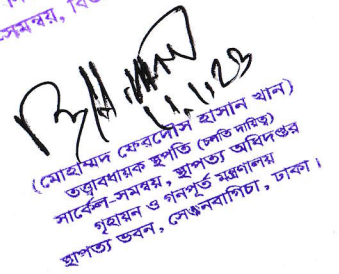 সমন্বয়,
11.1.23
(মোহাম্মদ ফেরদৌস হাসান খান)
তত্ত্বাবধায়ক স্থপতি (চলতি দায়িত্ব)
সার্কেল-সমন্বয়, স্থাপত্য অধিদপ্তর
গৃহায়ন ও গনপূর্ত মন্ত্রণালয়
স্থাপত্য ভবন, সেগুনবাগিচা, ঢাকা।